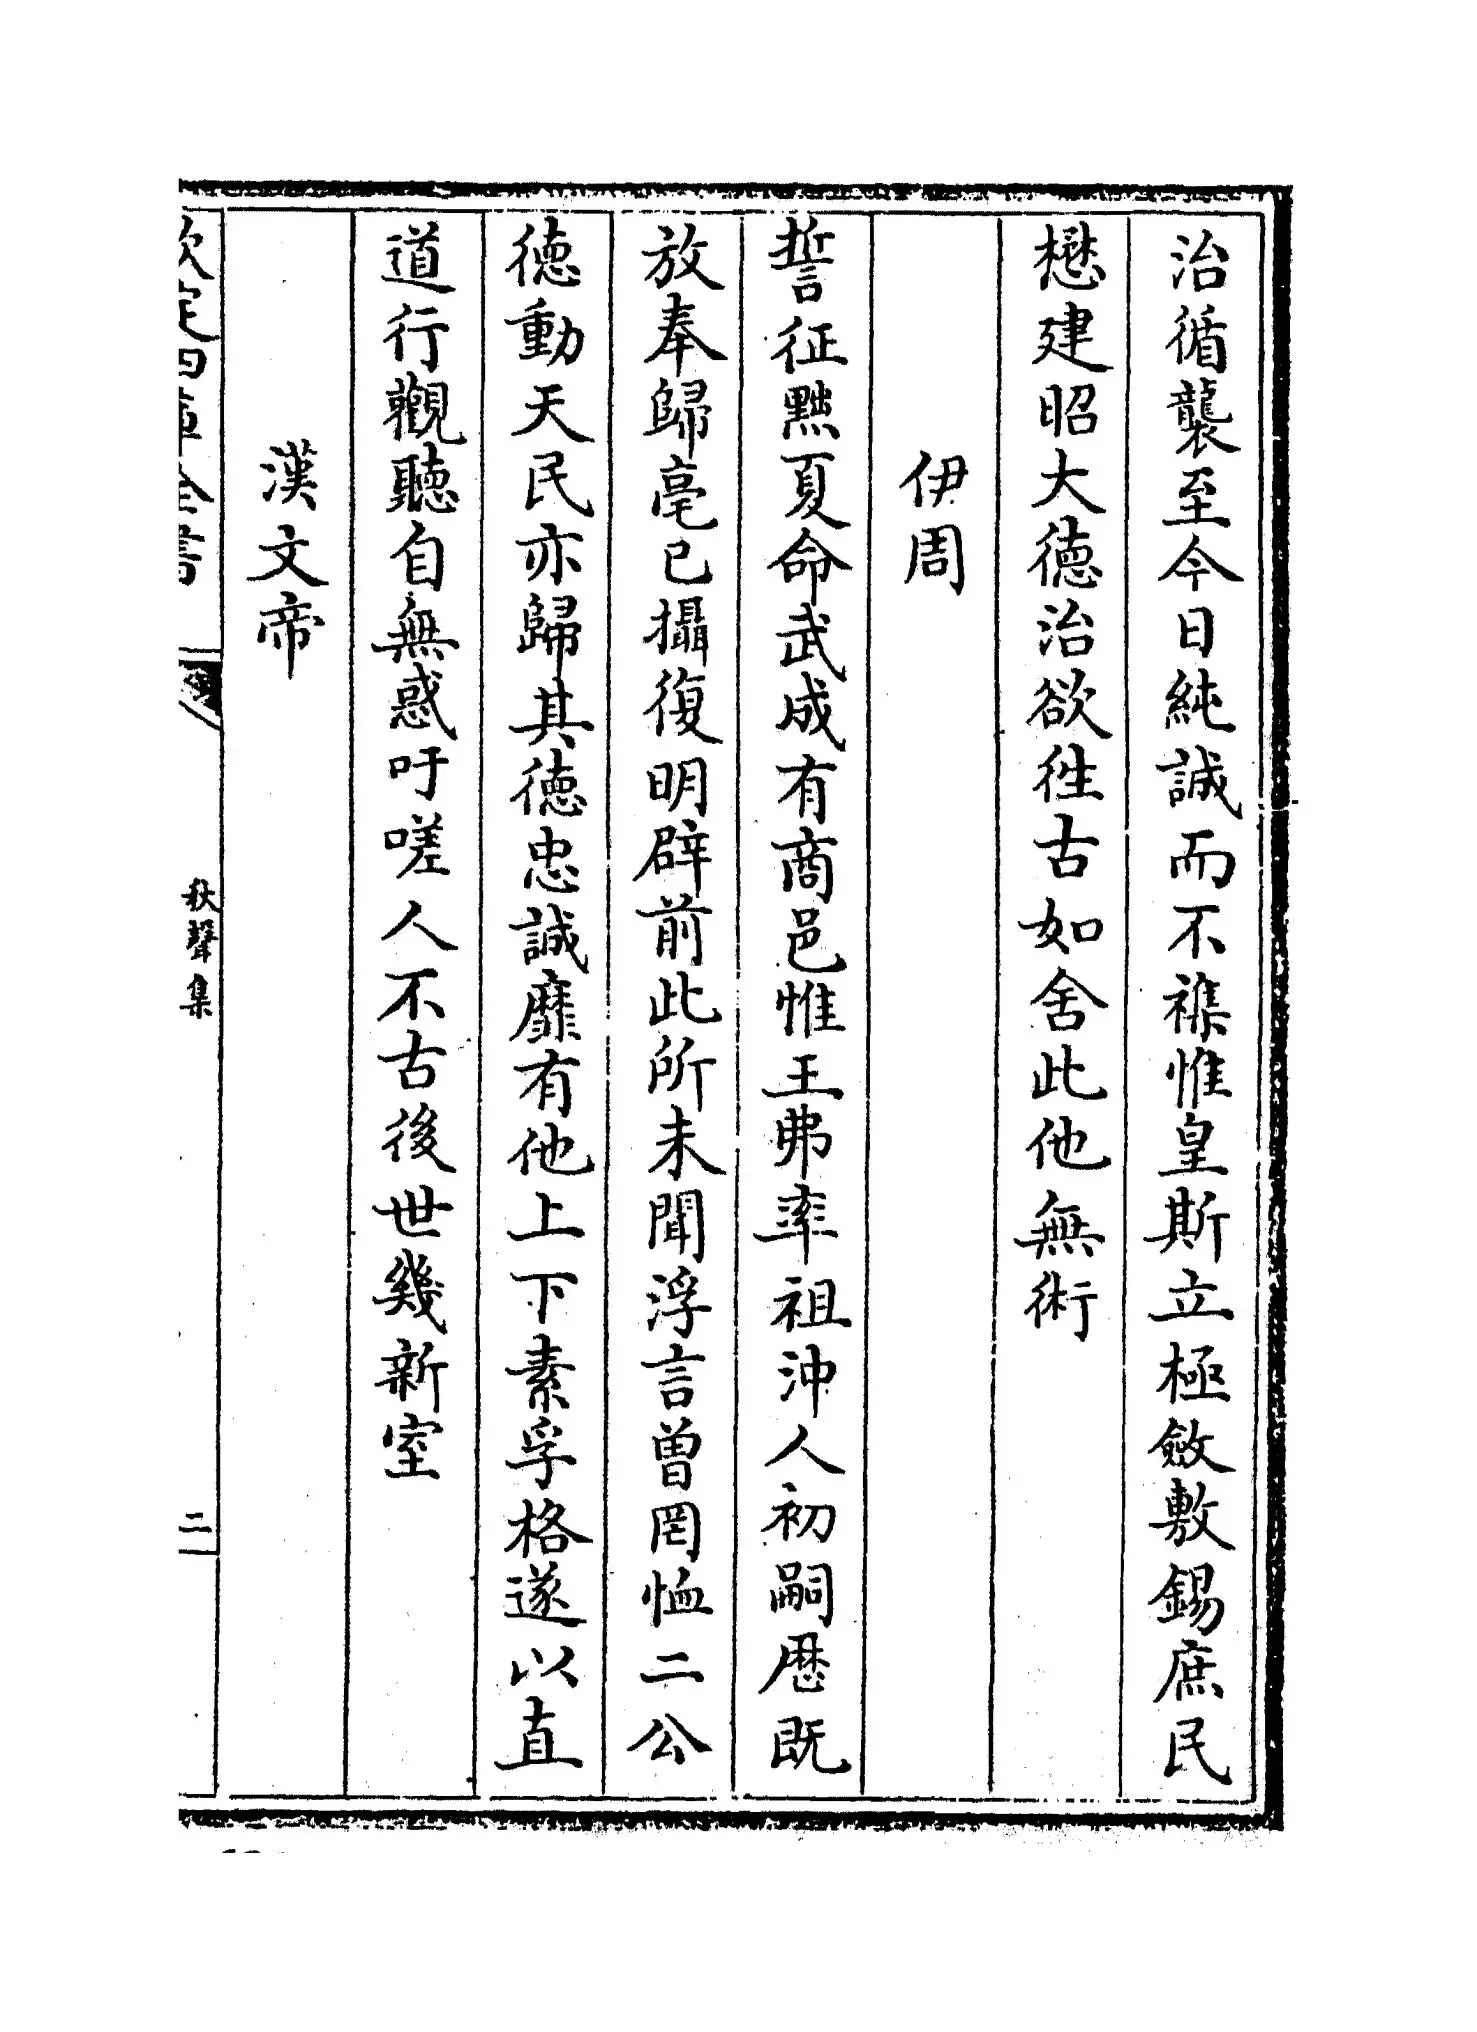 治循襲至今日純誠而不襍惟皇斯立極斂敷錫庶民
懋建昭大德治欲徃古如舍此他無術
伊周
誓征黜夏命武成有商邑惟王弗率祖沖人初嗣厯既
放奉歸亳已攝復明辟前此所未聞浮言曾罔恤二公
德動天民亦歸其德忠誠靡有他上下素孚格遂以直
道行觀聽自無惑吁嗟人不古後世幾新室
漢文帝
欽定四庫全書
秋聲集
二